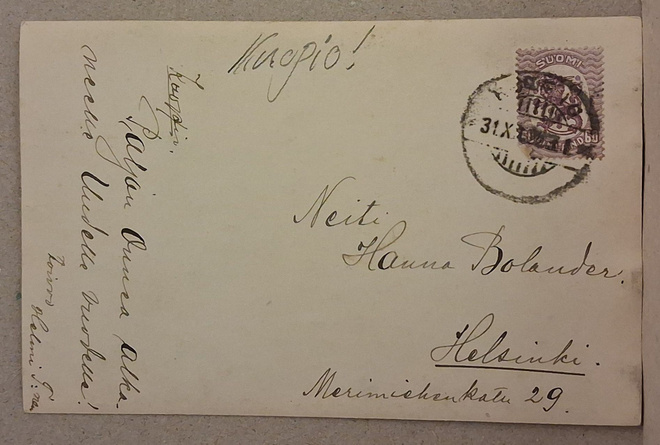 Kuopio!
SUOMI
Neiti
Hanna Bolander.
Helsinki.
Merimiehenkatu 29.
Paljon Onnea Alka-
neella Uudella vuodella!
Toivoo
Helmi